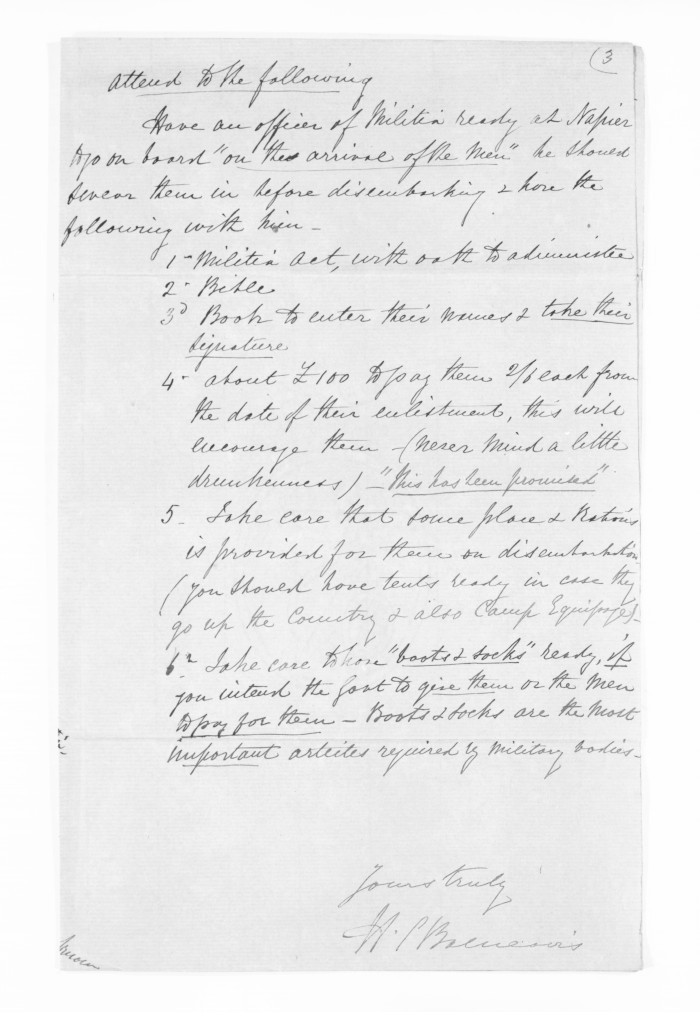 (3
attend to the following
Have an officer of Militia ready at Napier
to go on board "on the arrival of the Men" he should
swear them in before disembarking & have the
following with him –
1st Militia Act, with oath to administer
2nd Bible
3d Book to enter their names & take their
signature
4th about £100 to pay them 2/6 each from
the date of their enlistment, this will
encourage them – (never mind a little
drunkenness) – "this has been promised"
5 – Take care that some place & Rations
is provided for them on disembarkation
(you should have tents ready in case they
go up the Country & also Camp Equipage) –
6th Take care to have "boots & socks" ready, if
you intend the Govt to give them or the Men
to pay for them – Boots & socks are the most
important articles required by Military bodies –
Yours truly
H. C Balneavis